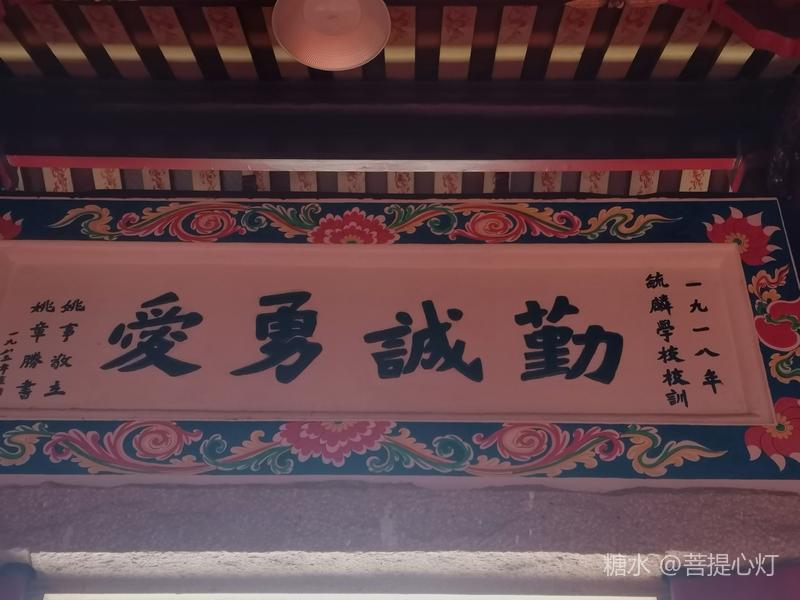 一九一八年
毓麟學校校訓
勤誠勇愛
姚事敬立
姚章勝書
糖水 @菩提心灯